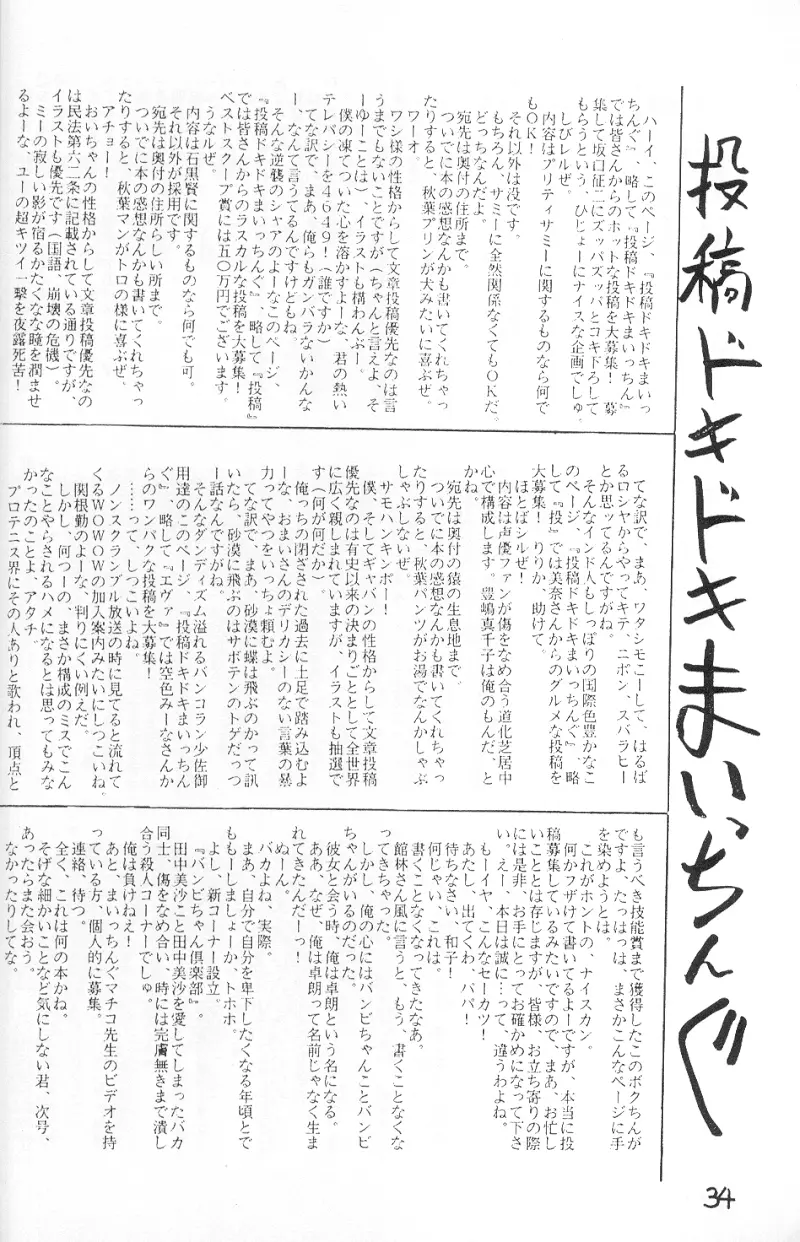 投稿ドキドキまいっちんぐ
ハーイ、このページ、『投稿ドキドキまいっ
ちんぐ』、略して『投稿ドキドキまいっちん』
では皆さんからのホットな投稿を大募集！　募
集して坂口征二にズッパズッパとコキ下ろして
もらうという、ひじょーにナイスな企画でしゅ。
しびレルぜ。
内容はプリティサミーに関するものなら何で
もＯＫ！
それ以外は没です。
もちろん、サミーに全然関係なくてもＯＫだ。
どっちなんだよ。
宛先は奥付の住所まで。
ついでに本の感想なんかも書いてくれちゃっ
たりすると、秋葉プリンが犬みたいに喜ぶぜ。
ワーオ。
ワシ様の性格からして文章投稿優先なのは言
うまでもないことですが（ちゃんと言えよ、そ
ーゆーことは）、イラストも構わんぶー。
僕の凍てついた心を溶かすよーな、君の熱い
テレパシーを４６４９！（誰ですか）
てな訳で、まあ、俺らもガンバラないかんな
ー、なんて言うてるんですけどもね。
そんな逆襲のシャアのよーなこのページ、
『投稿ドキドキまいっちんぐ』、略して『投稿』
では皆さんからのラスカルな投稿を大募集！
ベストスクープ賞には５０万円でございます。
うなルぜ。
内容は石黒賢に関するものなら何でも可。
それ以外が採用です。
宛先は奥付の住所らしい所まで。
ついでに本の感想なんかも書いてくれちゃっ
たりすると、秋葉マンがトロの様に喜ぶぜ、
アチョー！
おいちゃんの性格からして文章投稿優先なの
は民法第六二条に記載されている通りですが、
イラストも優先です（国語、崩壊の危機）。
ミーの寂しい影が宿るかたくなな瞳を潤ませ
るよーな、ユーの超キツイ一撃を夜露死苦！
てな訳で、まあ、ワタシモこーして、はるば
るロシヤからやってキテ、ニポン、スバラヒー
とか思ってるんですがね。
そんなインド人もしっぽりの国際色豊かなこ
のページ、『投稿ドキドキまいっちんぐ』、略
して『投』では美奈さんからのグルメな投稿を
大募集！　りりか、助けて。
ほとばシルぜ！
内容は声優ファンが傷をなめ合う道化芝居中
心で構成します。豊嶋真千子は俺のもんだ、と
かね。
宛先は奥付の猿の生息地まで。
ついでに本の感想なんかも書いてくれちゃっ
たりすると、秋葉パンツがお湯でなんかしゃぶ
しゃぶしないぜ。
サモハンキンポー！
僕、そしてギャバンの性格からして文章投稿
優先なのは有史以来の決まりごととして全世界
に広く親しまれていますが、イラストも抽選で
す（何が何だか）。
俺っちの閉ざされた過去に土足で踏み込むよ
ーな、おまいさんのデリカシーのない言葉の暴
力ってやつをいっちょ頼むよ。
てな訳で、まあ、砂漠に蝶は飛ぶのかって訊
いたら、砂漠に飛ぶのはサボテンのトゲだっつ
ー話なんですがね。
そんなダンディズム溢れるバンコラン少佐御
用達のこのページ、『投稿ドキドキまいっちん
ぐ』、略して『エヴァ』では空色みーなさんか
らのワンパクな投稿を大募集！
……って、しつこいよね。
ノンスクランブル放送の時に見てると流れて
くるＷＯＷＯＷの加入案内みたいにしつこいね。
関根勤のよーな、判りにくい例えだ。
しかし、何つーの、まさか構成のミスでこん
なことやらされるハメになるとは思ってもみな
かったのことよ、アタチ。
プロテニス界にその人ありと歌われ、頂点と
も言うべき技能賞まで獲得したこのボクちんが
ですよ、たっはっは、まさかこんなページに手
を染めようとは。
これがホントの、ナイスカン。
何かフザけて書いてるよーですが、本当に投
稿募集しているみたいですので、まあ、お忙し
いこととは存じますが、皆様、お立ち寄りの際
には是非、お手にとってお確かめになって下さ
い。えー、本日は誠に…って、違うわよね。
もーイヤ、こんなセーカツ！
あたし、出てくわ、パパ！
待ちなさい、和子！
何じゃい、これは。
書くことなくなってきたなあ。
館林さん風に言うと、もう、書くことなくな
ってきちゃった。
しかし、俺の心にはバンビちゃんことバンビ
ちゃんがいるのだった。
彼女と会う時、俺は卓朗という名になる。
ああ、なぜ、俺は卓朗って名前じゃなく生ま
れてきたんだーっ！
ぬーん。
バカよね、実際。
まあ、自分で自分を卑下したくなる年頃とで
ももーしましょーか、トホホ。
よし、新コーナー設立。
『バンビちゃん倶楽部』。
田中美沙こと田中美沙を愛してしまったバカ
同士、傷をなめ合い、時には完膚無きまで潰し
合う殺人コーナーでしゅ。
俺は負けねえ！
あと、まいっちんぐマチコ先生のビデオを持
っている方、個人的に募集。
連絡、待つ。
全く、これは何の本かね。
そげな細かいことなど気にしない君、次号、
あったらまた会おう。
なかったりしてな。
34